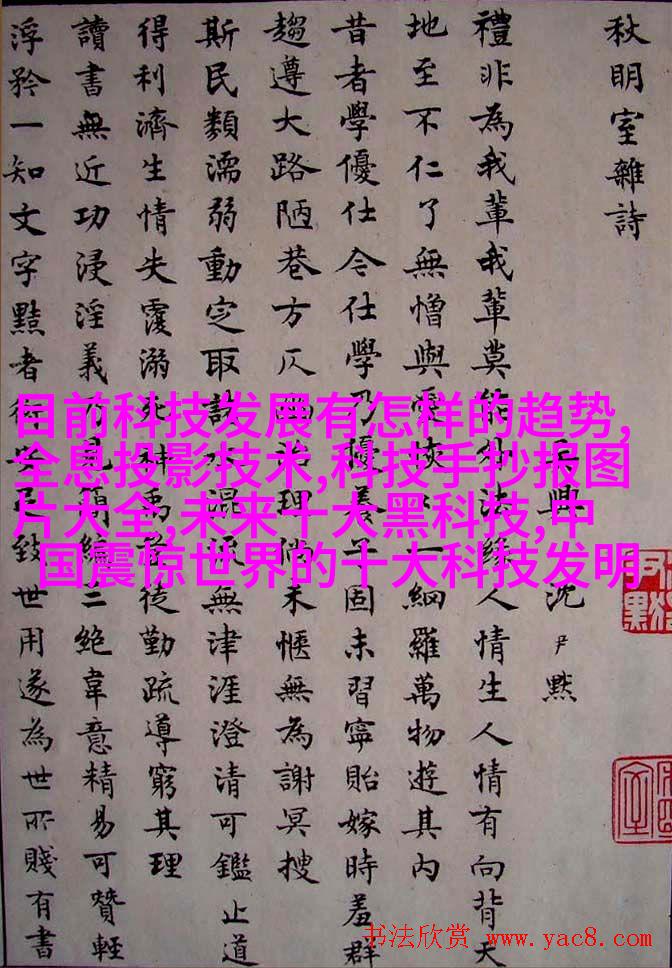 秋明室雜詩
興 沈尹默
禮非為我輩我輩莫能外法緣人情生人情有向背天
地至不仁了無憎與愛恢一綱羅萬物遊其內
昔者學優仕今仕學乃優養子固未習寧貽嫁時羞群
趨遵大路陋巷方仄治理倘未愜無為謝冥搜
斯民類濡弱動定取訣水混無津涯澄清可鑑止道
得利濟生情失覆溺死神禹豈徒勤疏導窮其理
讀書無近功浸淫義見編三絕韋意精易可贊輕
浮矜一知文字黠者致世用遂為世所賤有書
目前科技发展有怎样的趋势,
全息投影技术,科技手抄报图
片大全,未来十大黑科技,中
国震惊世界的十大科技发明
书法欣赏 www.yac8.com